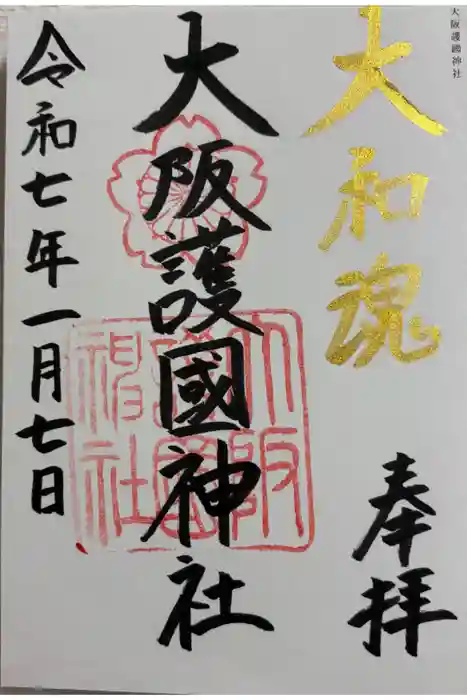 大阪護國神社
大和魂
奉拝
大阪護國神社
大阪
護國
神社
令和七年一月七日